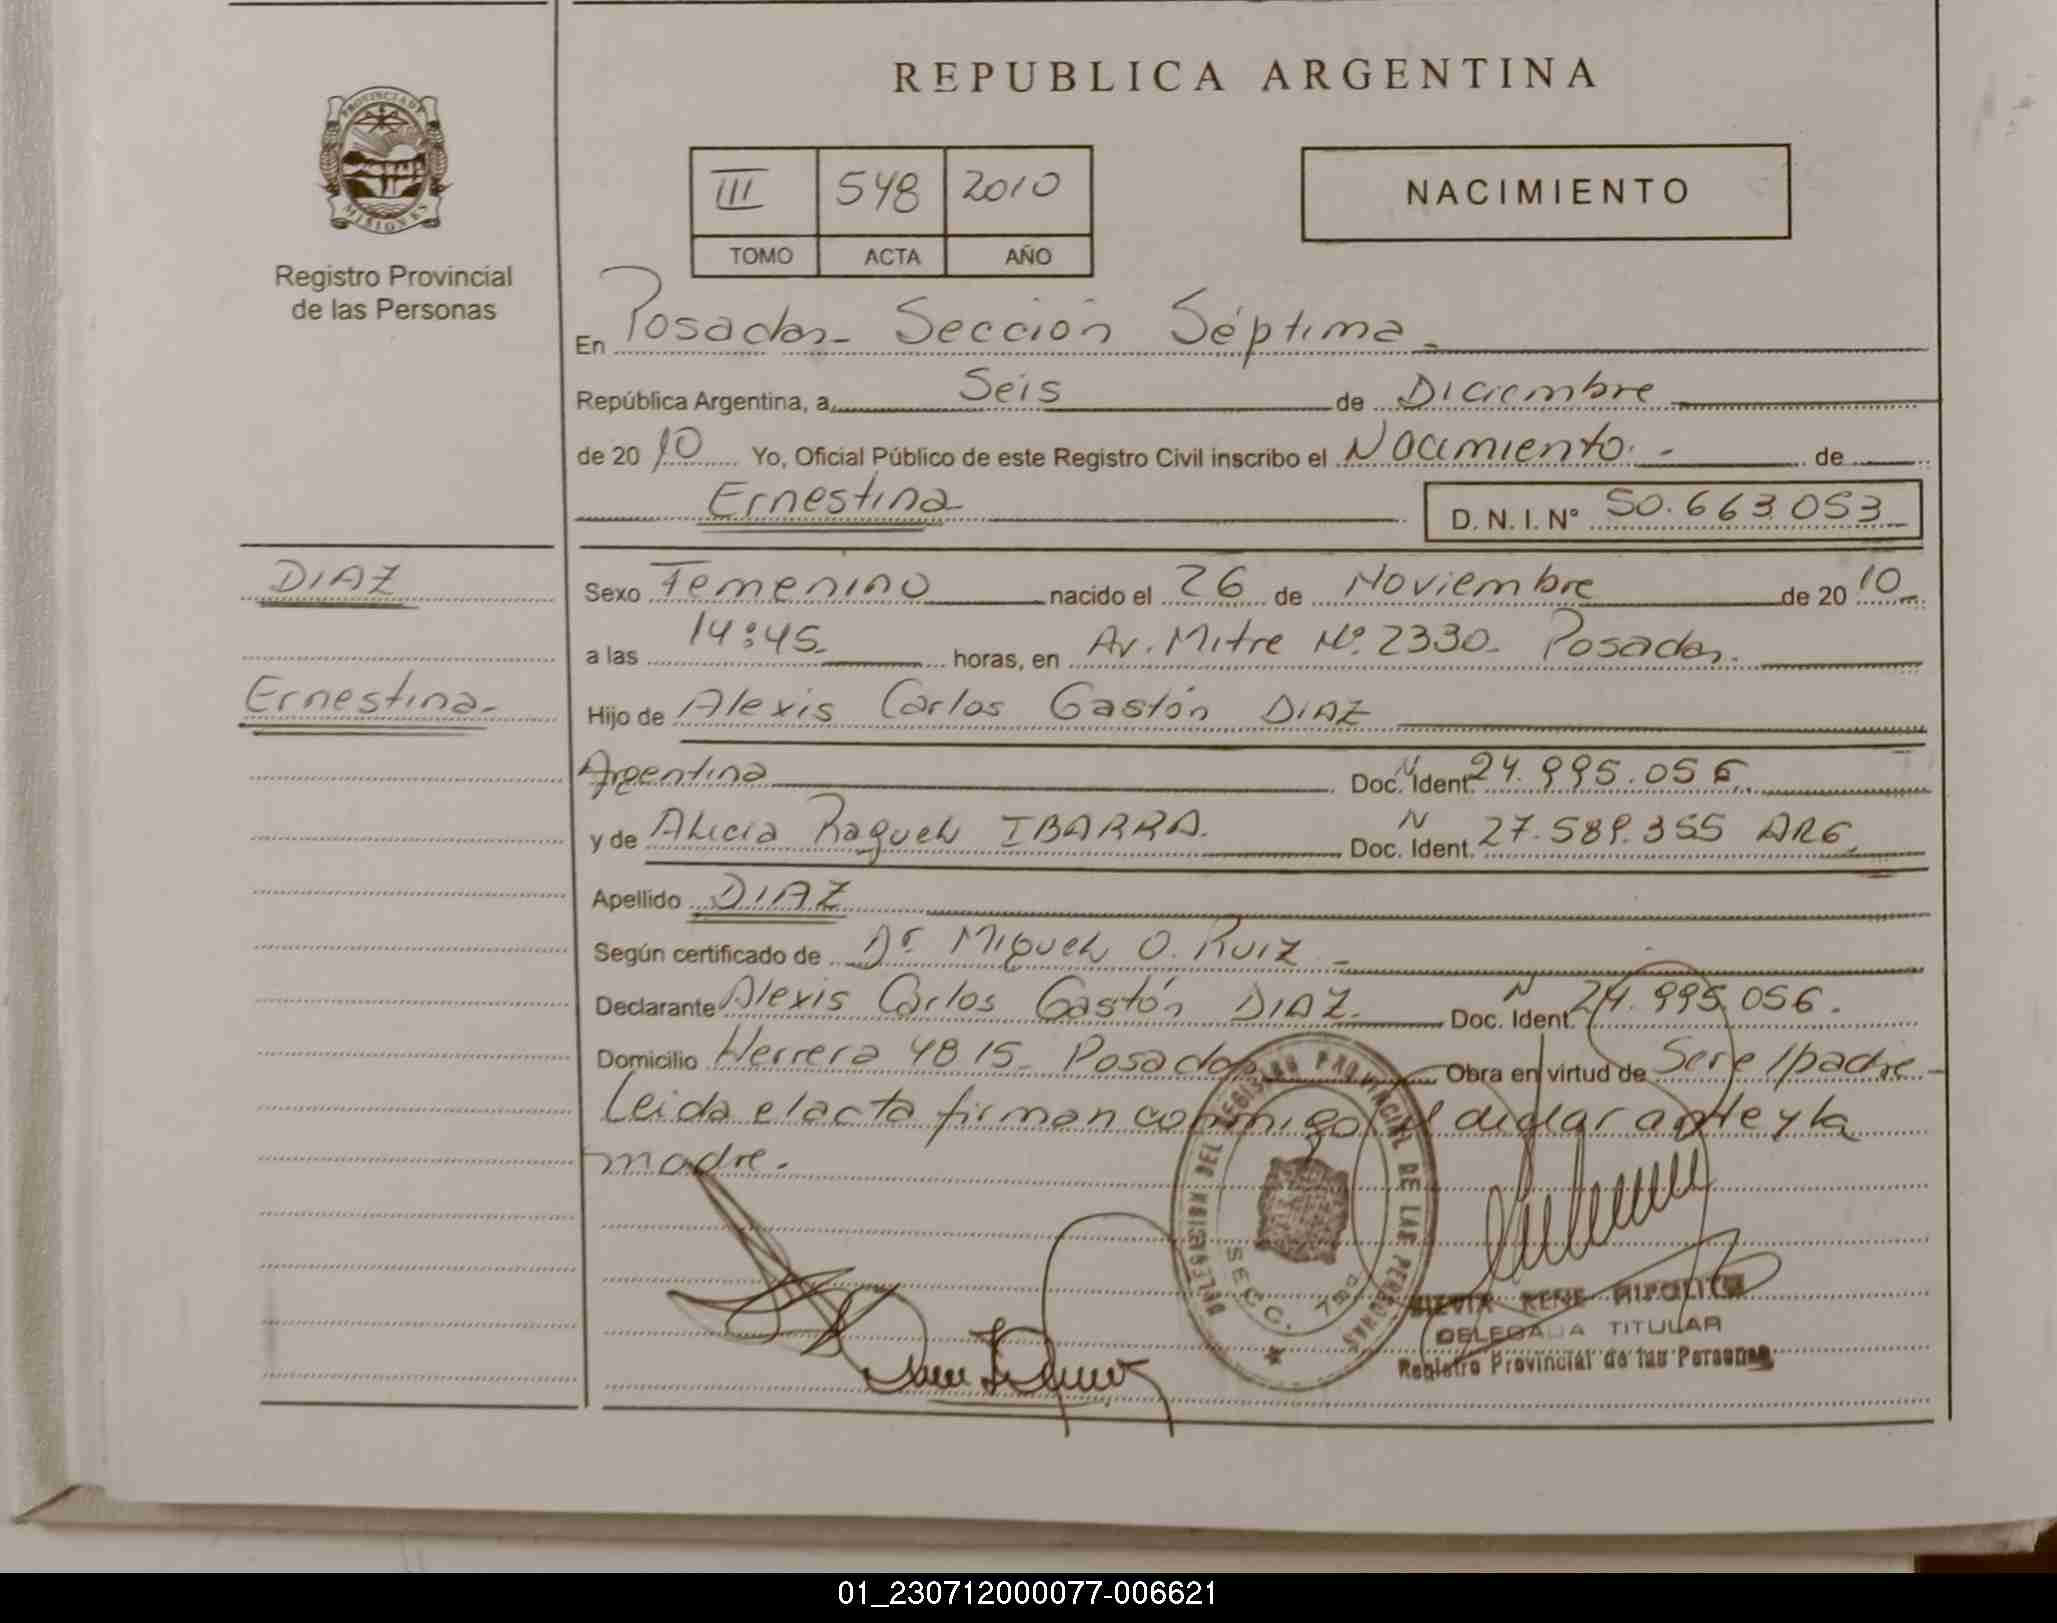 REPUBLICA ARGENTINA
PROVINCIA DE MISIONES
Registro Provincial
de las Personas
III 548 2010
TOMO ACTA AÑO
NACIMIENTO
En Posadas- Sección Séptima.-
República Argentina, a Seis de Diciembre
de 2010 Yo, Oficial Público de este Registro Civil inscribo el Nacimiento.- de
Ernestina D. N. I. Nº 50.663.053
DIAZ
Ernestina-
Sexo Femenino nacido el 26 de Noviembre de 2010
a las 14:45 horas, en Av. Mitre Nº 2330- Posadas.
Hijo de Alexis Carlos Gastón DIAZ
Argentina Doc. N Ident. 24.995.056
y de Alicia Raquel IBARRA. Doc. N Ident. 27.589.355 ARG.
Apellido DIAZ
Según certificado de Dr. Miguel O. Ruiz -
Declarante Alexis Carlos Gastón DIAZ. Doc. N Ident. 24.995.056.
Domicilio Herrera 4815- Posadas Obra en virtud de Ser el padre-
Leida el acta firman conmigo el declarante y la
madre.-
DELEGACION DEL REGISTRO PROVINCIAL DE LAS PERSONAS
SECC. 7ma
RENE HIPOLITO
DELEGADA TITULAR
Registro Provincial de las Personas
01_230712000077-006621